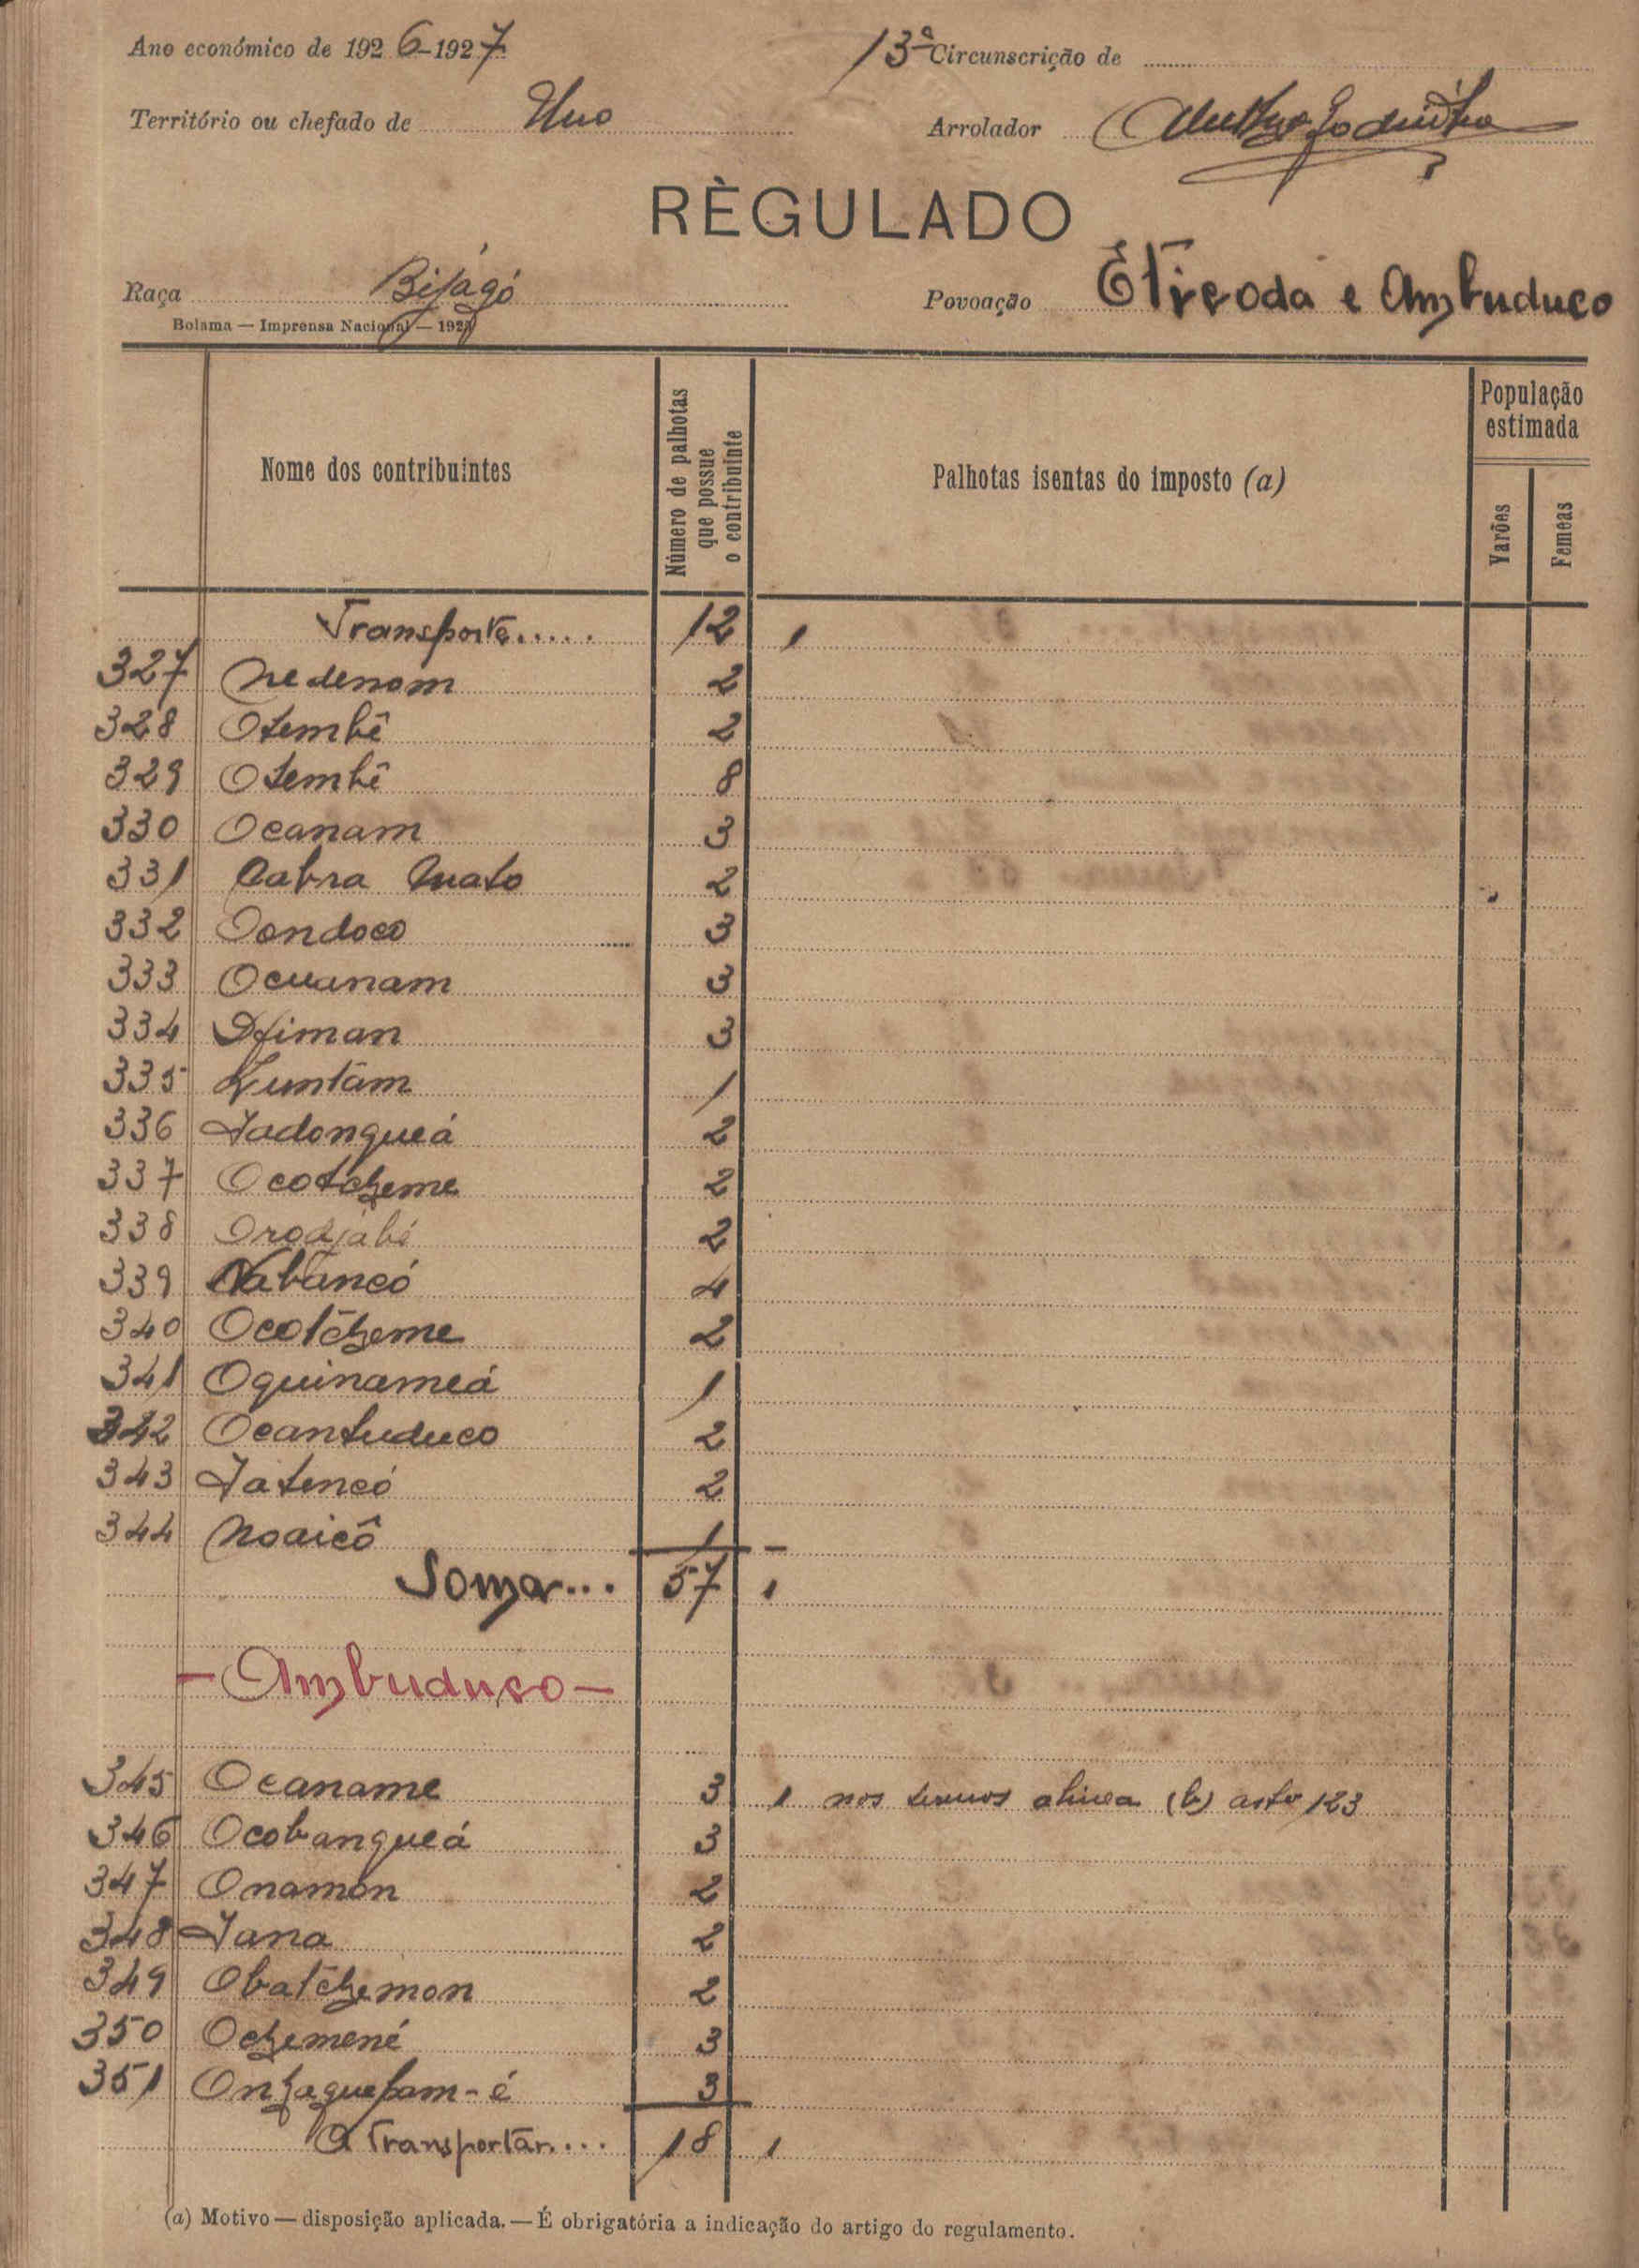 Ano económico de 1926-1927 13ª Circunscrição de
Território ou chefado de Uno Arrolador
RÈGULADO
Raça Bijagó Povoação Etícoda e Ambuduco
Bolama — Imprensa Nacional — 192
Nome dos contribuintes
Número de palhotas que possue o contribuinte
Palhotas isentas do imposto (a)
População estimada
Varões
Femeas
Transporte..... 12 1
327 Nedenom 2
328 Otembê 2
329 Otembê 8
330 Ocanam 3
331 Cabra Mato 2
332 Condoco 3
333 Ocuanam 3
334 3
335 Zuntam 1
336 Jadongueá 2
337 Ocotcheme 2
338 Orodjabé 2
339 Nabancó 4
340 Ocotcheme 2
341 Oquinameá 1
342 Ocantuduco 2
343 Jatencó 2
344 Noaicô 1 —
Soma... 57 1
— Ambuduco —
345 Ocaname 3 1 nos termos alinea (b) artº 123
346 Ocobangueá 3
347 Onamon 2
348 Jana 2
349 Obatchemon 2
350 Ochemené 3
351 3
A Transportar... 18 1
(a) Motivo — disposição aplicada. — É obrigatória a indicação do artigo do regulamento.